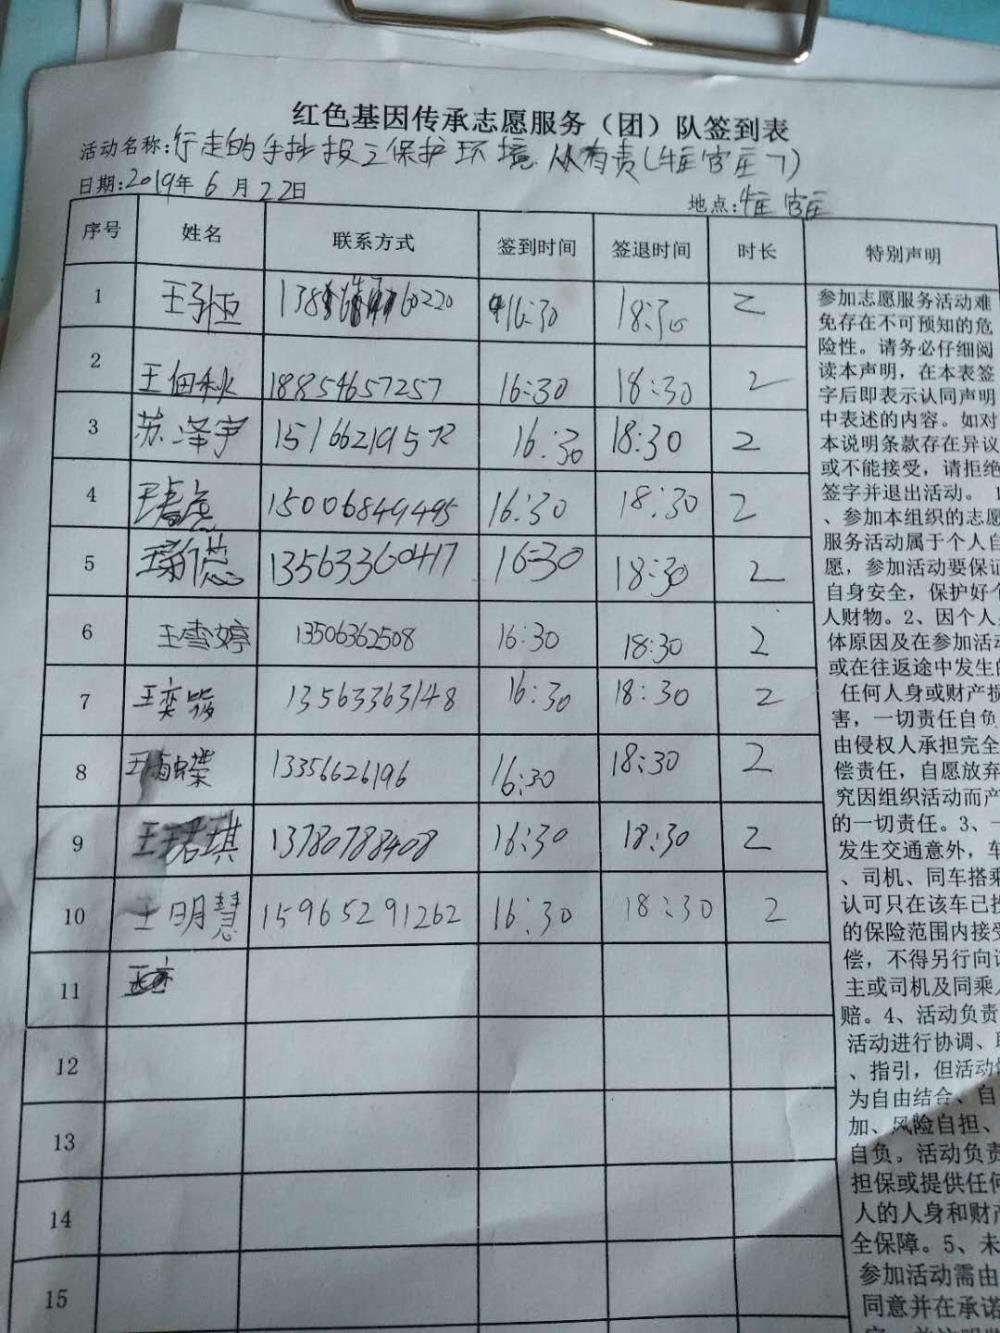 红色基因传承志愿服务（团）队签到表
活动名称:行走的手抄报之保护环境 人人有责(牛庄官庄
日期:2019年6月22日
地点:官庄
序号 姓名 联系方式 签到时间 签退时间 时长 特别声明
1 王子恒 138 60220 16:30 18:30 2
2 王佃秋 18854657257 16:30 18:30 2
3 苏泽宇 15166219572 16:30 18:30 2
4 王 15006849495 16:30 18:30 2
5 13563360417 16:30 18:30 2
6 王雪婷 13506362508 16:30 18:30 2
7 王奕 13563363148 16:30 18:30 2
8 王 蝶 13356626196 16:30 18:30 2
9 王珺琪 13780788408 16:30 18:30 2
10 王明慧 15965291262 16:30 18:30 2
11
12
13
14
15
参加志愿服务活动难
免存在不可预知的危
险性。请务必仔细阅
读本声明，在本表签
字后即表示认同声明
中表述的内容。如对
本说明条款存在异议
或不能接受，请拒绝
签字并退出活动。
、参加本组织的志愿
服务活动属于个人自
愿，参加活动要保证
自身安全，保护好个
人财物。2、因个人
体原因及在参加活动
或在往返途中发生的
任何人身或财产损
害，一切责任自负
由侵权人承担完全
偿责任，自愿放弃
究因组织活动而产
的一切责任。3、一
发生交通意外，车
、司机、同车搭乘
认可只在该车已投
的保险范围内接受
偿，不得另行向
主或司机及同乘人
赔。4、活动负责
活动进行协调、
、指引，但活动
为自由结合、自
加、风险自担、
自负。活动负责
担保或提供任何
人的人身和财产
全保障。5、未
参加活动需由
同意并在承诺